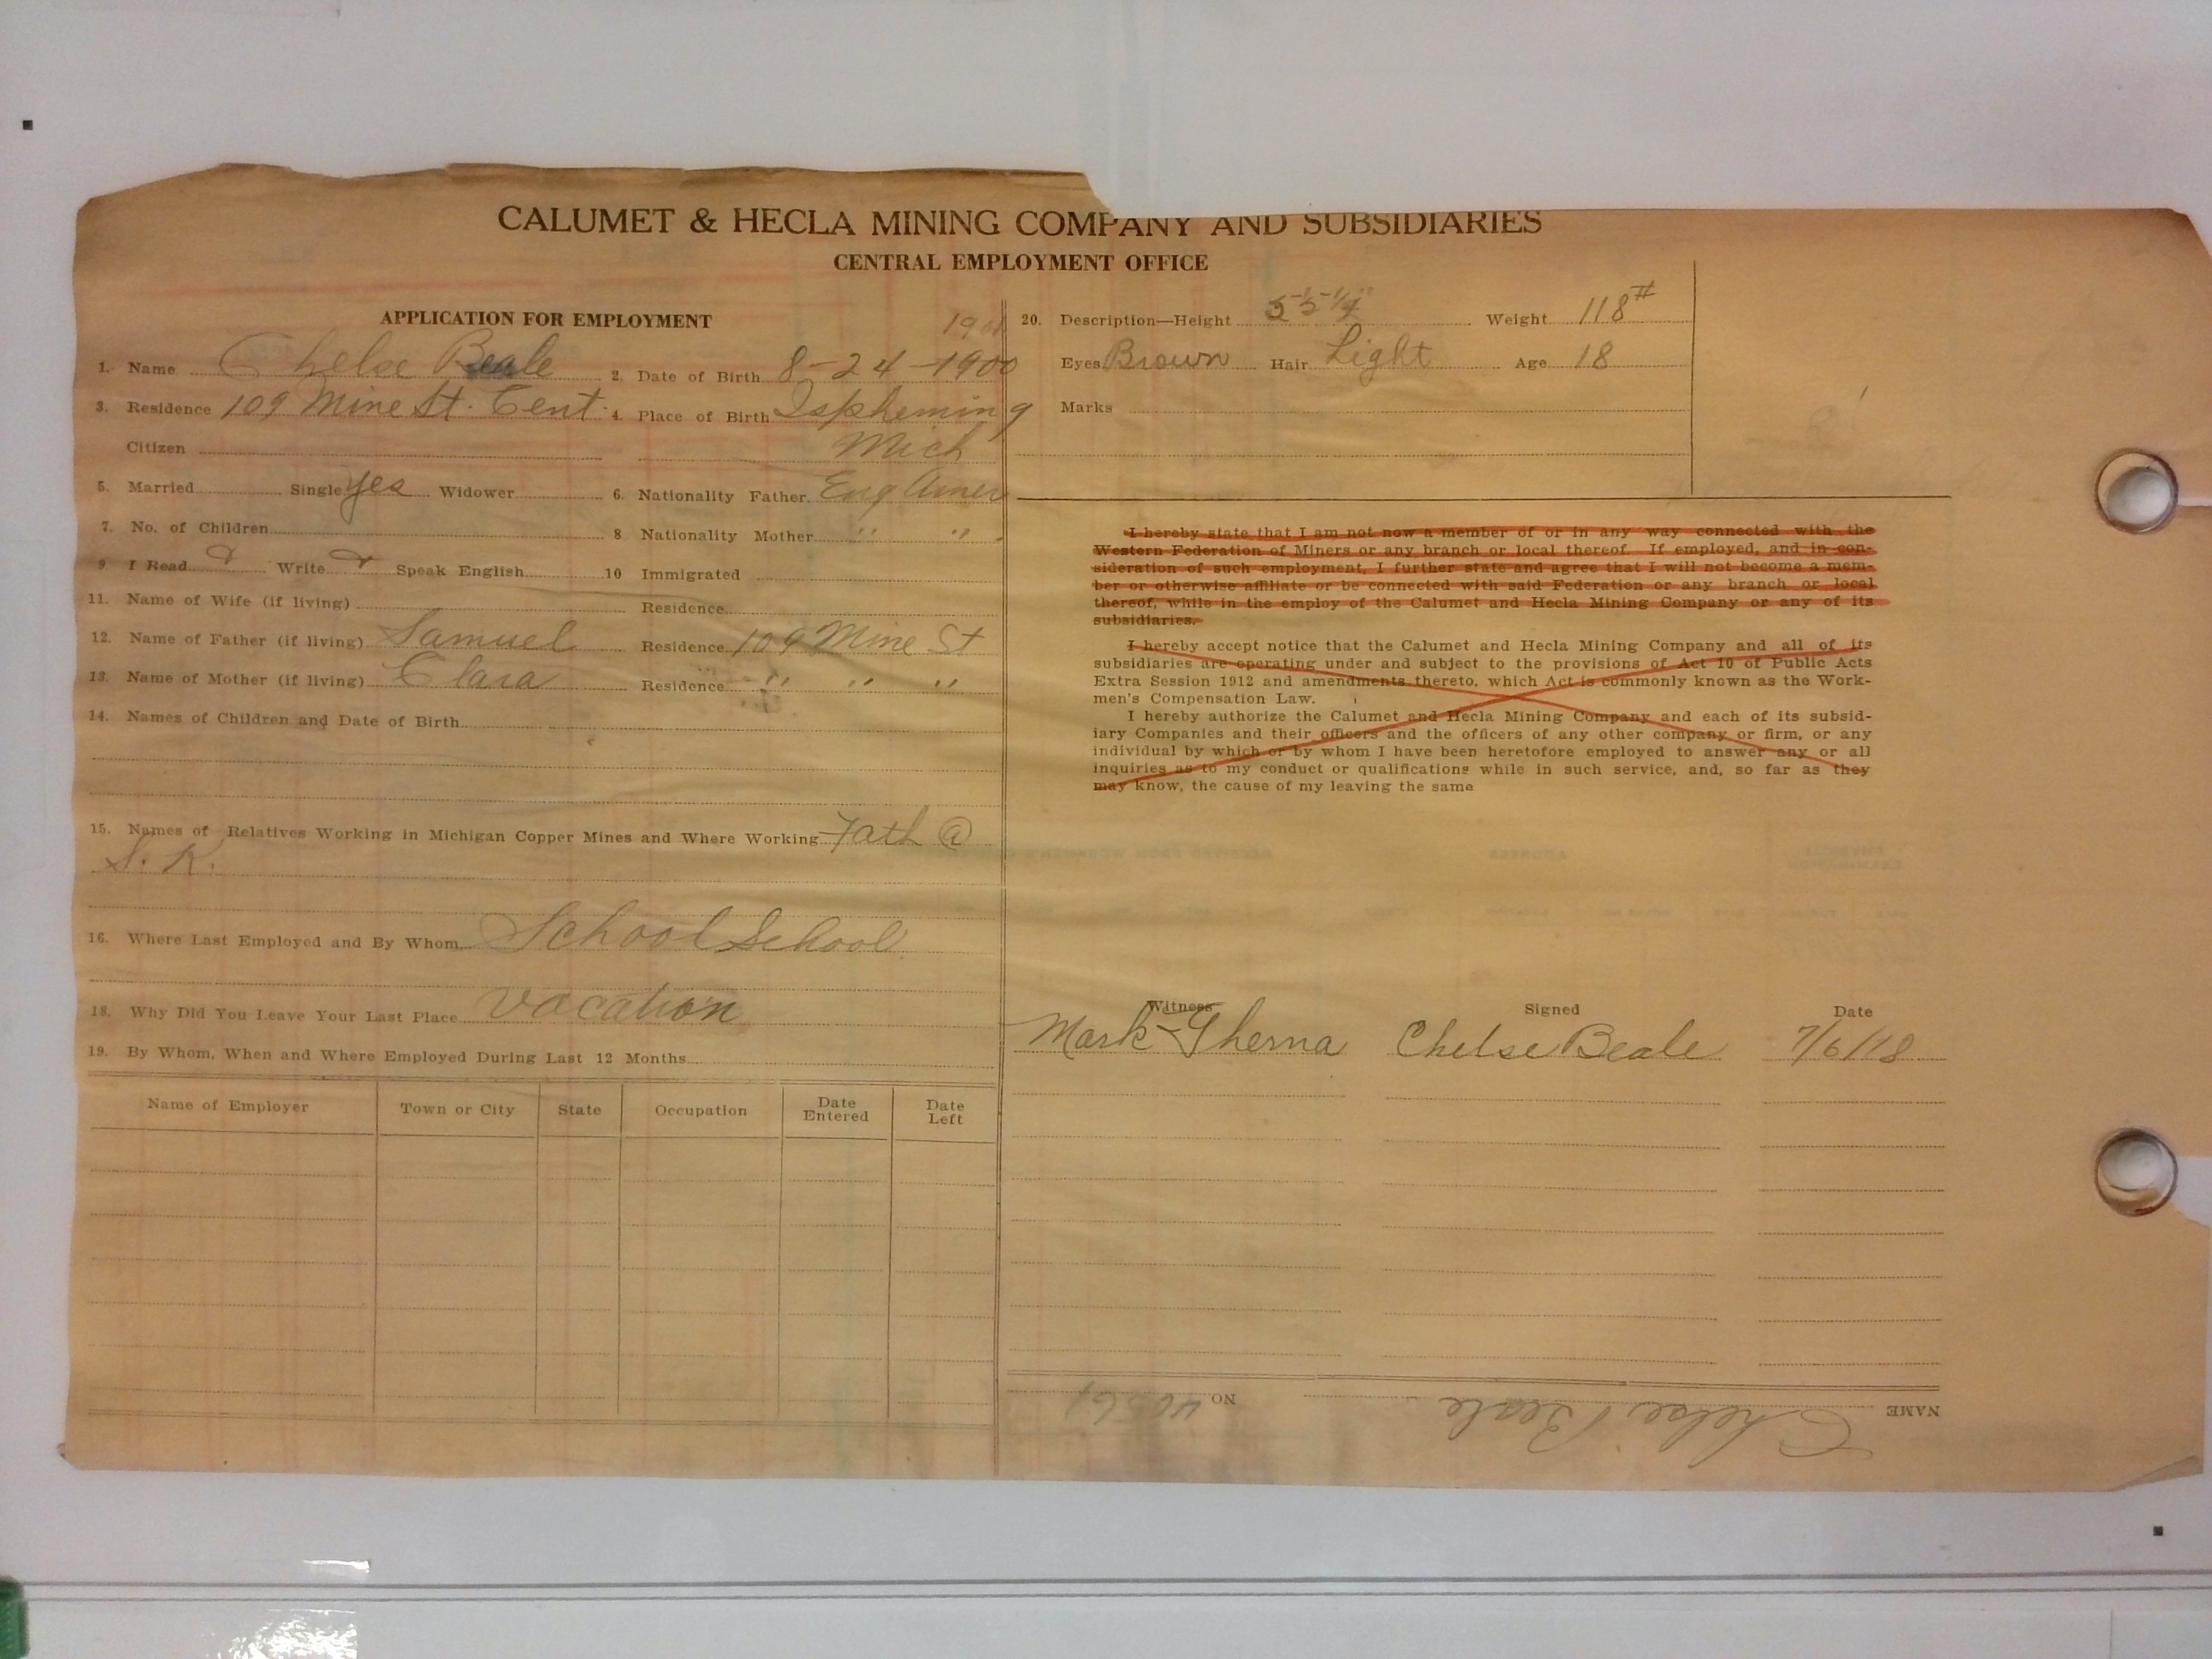 CALUMET & HECLA MINING COMPANY AND SUBSIDIARIES
CENTRAL EMPLOYMENT OFFICE
APPLICATION FOR EMPLOYMENT
1. Name Chelse Beale 2. Date of Birth 8-24-1900
3. Residence 109 Mine St. Cent. 4. Place of Birth Ispheming
Citizen Mich
5. Married Single yes Widower 6. Nationality Father. Eng Amer
7. No. of Children 8 Nationality Mother " "
9 I Read Write Speak English 10 Immigrated
11. Name of Wife (if living) Residence
12. Name of Father (if living) Samuel Residence 109 Mine St
13. Name of Mother (if living) Clara Residence " " "
14. Names of Children and Date of Birth
15. Names of Relatives Working in Michigan Copper Mines and Where Working Fath @
S. K.
16. Where Last Employed and By Whom School School
18. Why Did You Leave Your Last Place vacation
19. By Whom, When and Where Employed During Last 12 Months
Name of Employer Town or City State Occupation Date Entered Date Left
20. Description—Height 5'5 1/4" Weight 118#
Eyes Brown Hair Light Age 18
Marks
I hereby state that I am not now a member of or in any way connected with the
Western Federation of Miners or any branch or local thereof. If employed, and in con-
sideration of such employment, I further state and agree that I will not become a mem-
ber or otherwise affiliate or be connected with said Federation or any branch or local
thereof, while in the employ of the Calumet and Hecla Mining Company or any of its
subsidiaries.
I hereby accept notice that the Calumet and Hecla Mining Company and all of its
subsidiaries are operating under and subject to the provisions of Act 10 of Public Acts
Extra Session 1912 and amendments thereto, which Act is commonly known as the Work-
men's Compensation Law.
I hereby authorize the Calumet and Hecla Mining Company and each of its subsid-
iary Companies and their officers and the officers of any other company or firm, or any
individual by which or by whom I have been heretofore employed to answer any or all
inquiries as to my conduct or qualifications while in such service, and, so far as they
may know, the cause of my leaving the same
Witness Signed Date
Mark Gherna Chelse Beale 7/6/18
NAME Chelse Beale NO 40561